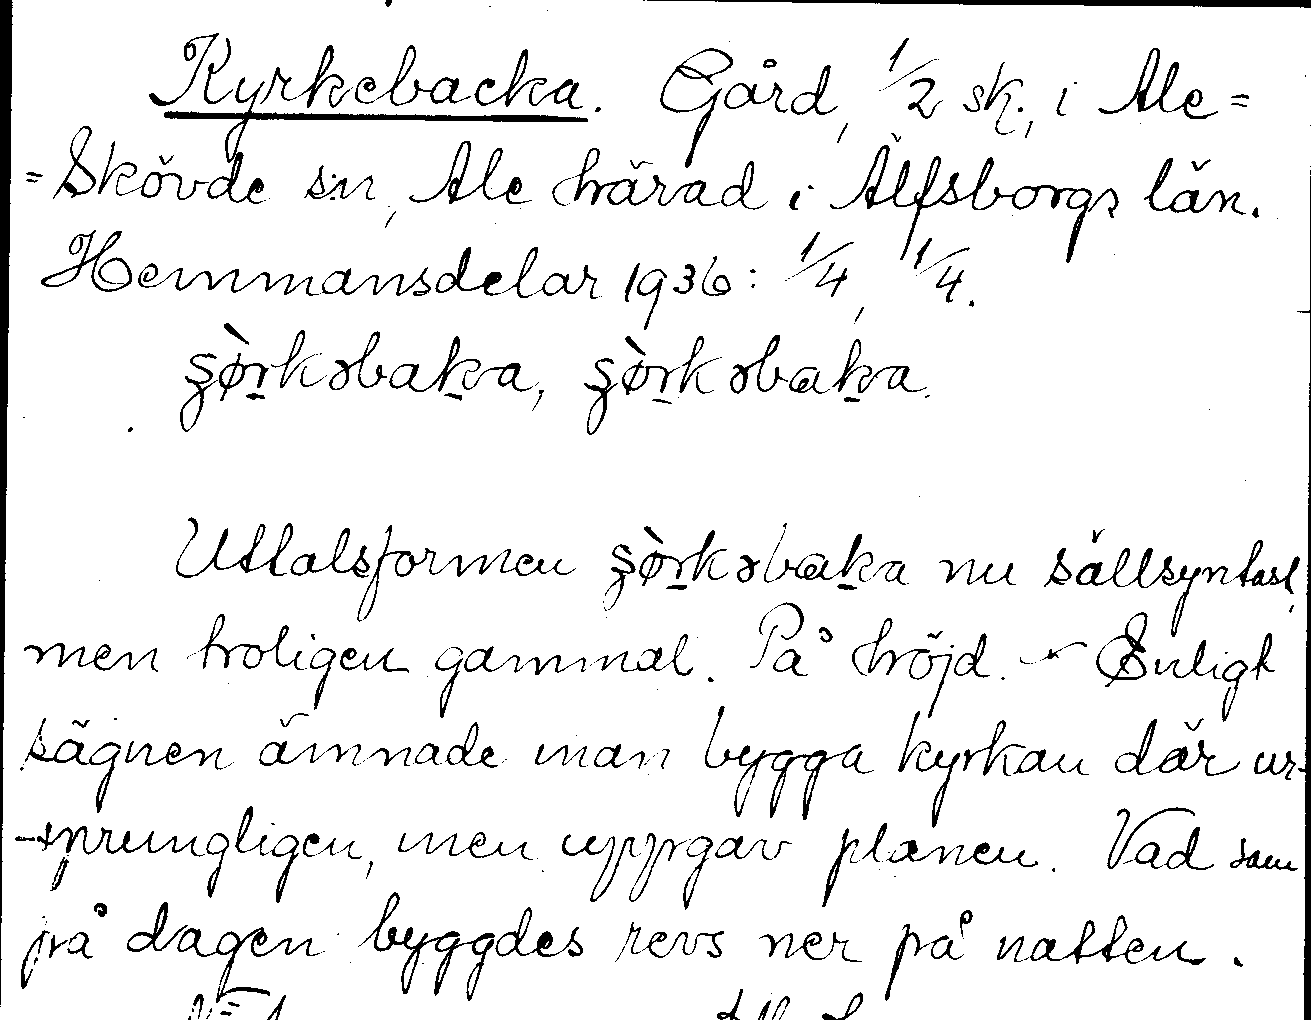 Kyrkebacka. Gård, 1/2 sk., i Ale=
=Skövde sn, Ale härad i Älfsborgs län.
Hemmansdelar 1936: 1/4, 1/4.
Uttalsformen nu sällsyntast,
men troligen gammal. På höjd. – Enligt
sägnen ämnade man bygga kyrkan där ur-
-sprungligen, men uppgav planen. Vad som
på dagen byggdes revs ner på natten.